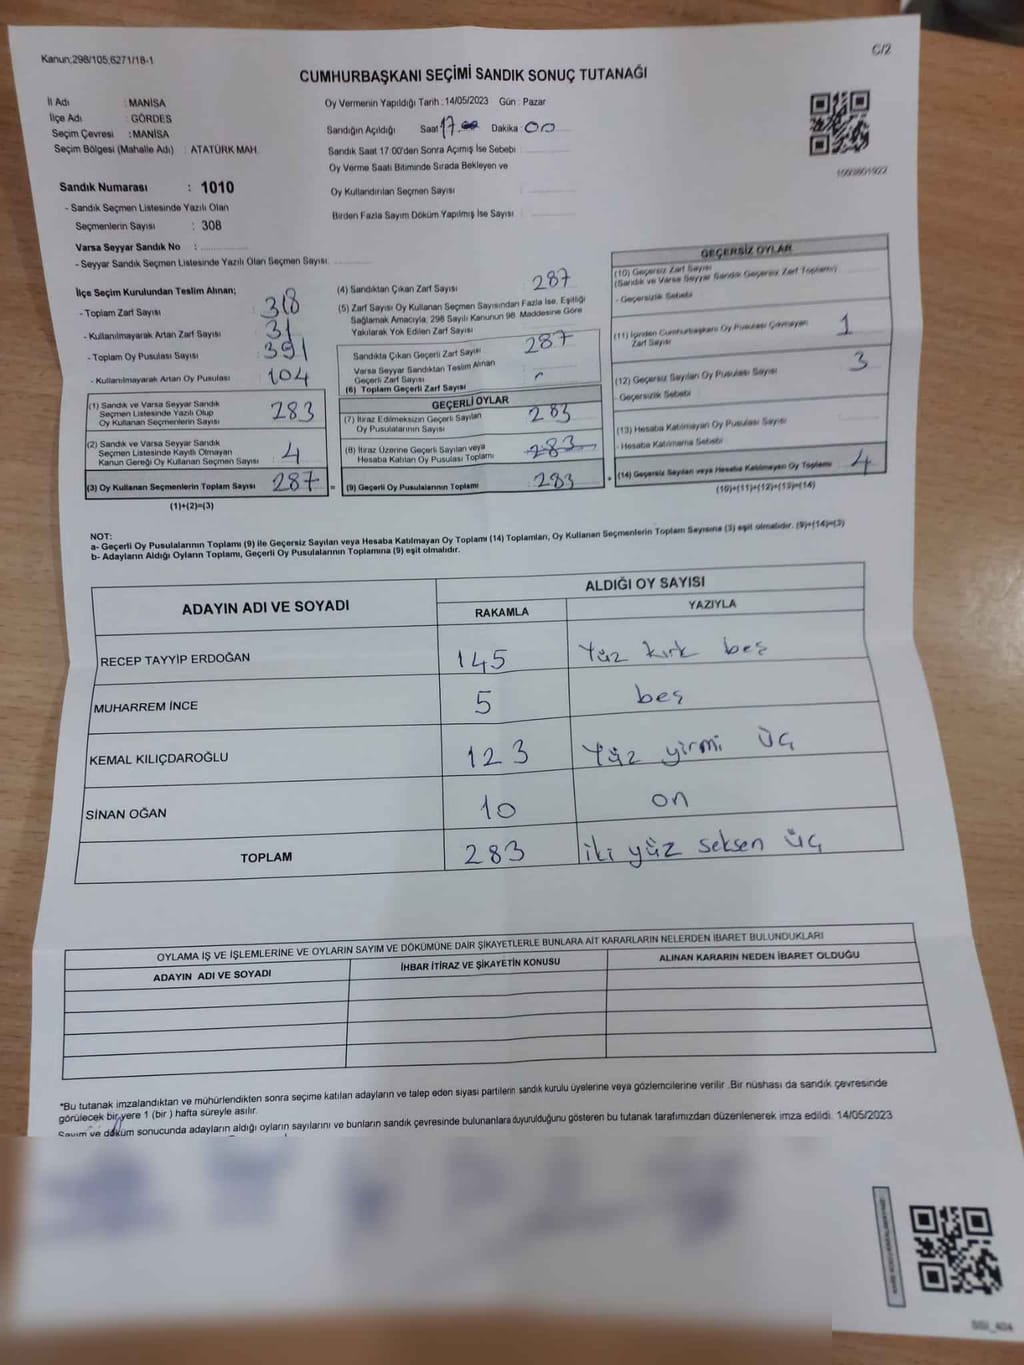 Kanun;298/105;6271/18-1
C/2
CUMHURBAŞKANI SEÇİMİ SANDIK SONUÇ TUTANAĞI
İl Adı : MANİSA
İlçe Adı : GÖRDES
Seçim Çevresi : MANİSA
Seçim Bölgesi (Mahalle Adı) : ATATÜRK MAH.
Sandık Numarası : 1010
- Sandık Seçmen Listesinde Yazılı Olan
Seçmenlerin Sayısı : 308
Varsa Seyyar Sandık No :
- Seyyar Sandık Seçmen Listesinde Yazılı Olan Seçmen Sayısı:
Oy Vermenin Yapıldığı Tarih : 14/05/2023 Gün : Pazar
Sandığın Açıldığı Saat 17.00 Dakika : 00
Sandık Saat 17:00'den Sonra Açmış İse Sebebi :
Oy Verme Saati Bitiminde Sırada Bekleyen ve
Oy Kullandırılan Seçmen Sayısı :
Birden Fazla Sayım Döküm Yapılmış İse Sayısı :
İlçe Seçim Kurulundan Teslim Alınan;
- Toplam Zarf Sayısı : 318
- Kullanılmayarak Artan Zarf Sayısı : 31
- Toplam Oy Pusulası Sayısı : 391
- Kullanılmayarak Artan Oy Pusulası : 104
(1) Sandık ve Varsa Seyyar Sandık
Seçmen Listesinde Yazılı Olup
Oy Kullanan Seçmenlerin Sayısı : 283
(2) Sandık ve Varsa Seyyar Sandık
Seçmen Listesinde Kayıtlı Olmayan
Kanun Gereği Oy Kullanan Seçmen Sayısı : 4
(3) Oy Kullanan Seçmenlerin Toplam Sayısı : 287 =
(1)+(2)=(3)
(4) Sandıktan Çıkan Zarf Sayısı : 287
(5) Zarf Sayısı Oy Kullanan Seçmen Sayısından Fazla İse, Eşitliği
Sağlamak Amacıyla, 298 Sayılı Kanunun 98. Maddesine Göre
Yakılarak Yok Edilen Zarf Sayısı :
Sandıkta Çıkan Geçerli Zarf Sayısı : 287
Varsa Seyyar Sandıktan Teslim Alınan
Geçerli Zarf Sayısı :
(6) Toplam Geçerli Zarf Sayısı :
GEÇERLİ OYLAR
(7) İtiraz Edilmeksizin Geçerli Sayılan
Oy Pusulalarının Sayısı : 283
(8) İtiraz Üzerine Geçerli Sayılan veya
Hesaba Katılan Oy Pusulası Toplamı : 283
(9) Geçerli Oy Pusulalarının Toplamı : 283 +
GEÇERSİZ OYLAR
(10) Geçersiz Zarf Sayısı
(Sandık ve Varsa Seyyar Sandık Geçersiz Zarf Toplamı)
- Geçersizlik Sebebi
(11) İçinden Cumhurbaşkanı Oy Pusulası Çıkmayan
Zarf Sayısı : 1
(12) Geçersiz Sayılan Oy Pusulası Sayısı : 3
- Geçersizlik Sebebi
(13) Hesaba Katılmayan Oy Pusulası Sayısı
- Hesaba Katılmama Sebebi
(14) Geçersiz Sayılan veya Hesaba Katılmayan Oy Toplamı : 4
(10)+(11)+(12)+(13)=(14)
NOT:
a- Geçerli Oy Pusulalarının Toplamı (9) ile Geçersiz Sayılan veya Hesaba Katılmayan Oy Toplamı (14) Toplamları, Oy Kullanan Seçmenlerin Toplam Sayısına (3) eşit olmalıdır. (9)+(14)=(3)
b- Adayların Aldığı Oyların Toplamı, Geçerli Oy Pusulalarının Toplamına (9) eşit olmalıdır.
ADAYIN ADI VE SOYADI
ALDIĞI OY SAYISI
RAKAMLA YAZIYLA
RECEP TAYYİP ERDOĞAN 145 Yüz kırk beş
MUHARREM İNCE 5 beş
KEMAL KILIÇDAROĞLU 123 Yüz yirmi üç
SİNAN OĞAN 10 on
TOPLAM 283 iki yüz seksen üç
OYLAMA İŞ VE İŞLEMLERİNE VE OYLARIN SAYIM VE DÖKÜMÜNE DAİR ŞİKAYETLERLE BUNLARA AİT KARARLARIN NELERDEN İBARET BULUNDUKLARI
ADAYIN ADI VE SOYADI İHBAR İTİRAZ VE ŞİKAYETİN KONUSU ALINAN KARARIN NEDEN İBARET OLDUĞU
*Bu tutanak imzalandıktan ve mühürlendikten sonra seçime katılan adayların ve talep eden siyasi partilerin sandık kurulu üyelerine veya gözlemcilerine verilir .Bir nüshası da sandık çevresinde
görülecek bir yere 1 (bir ) hafta süreyle asılır.
Sayım ve döküm sonucunda adayların aldığı oyların sayılarını ve bunların sandık çevresinde bulunanlara duyurulduğunu gösteren bu tutanak tarafımızdan düzenlenerek imza edildi. 14/05/2023